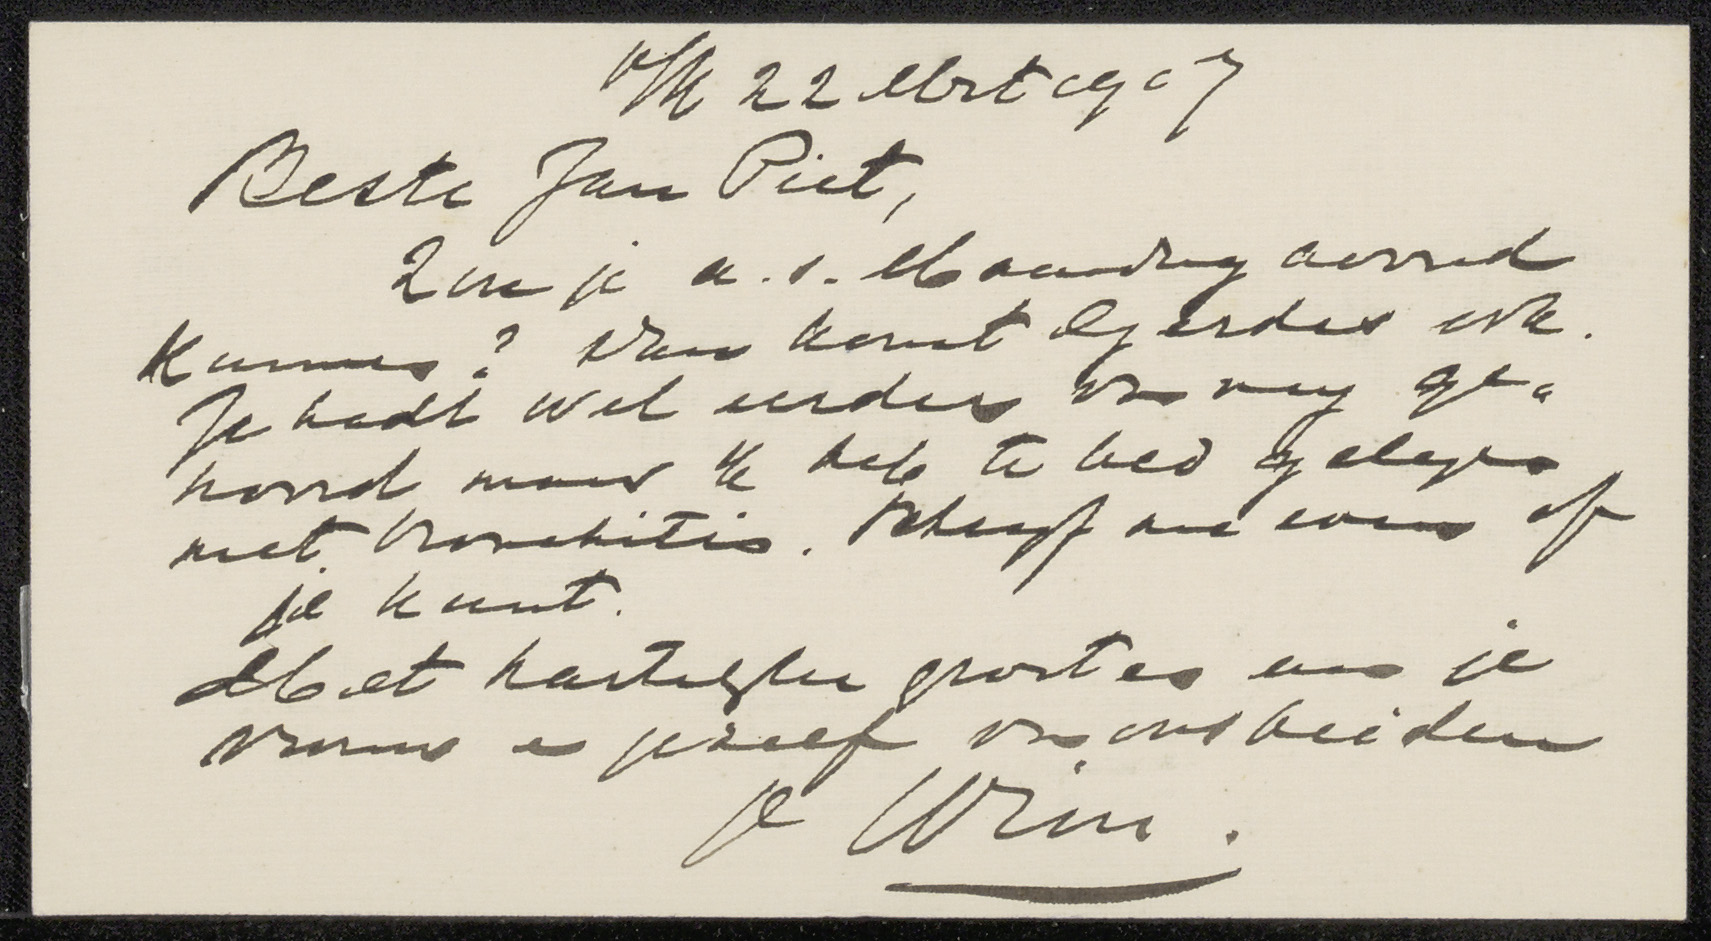 22 Mrt 1907
Beste Jan Piet,
Zou je a.s. Maandag avond
kunnen? Dan komt Egerdes ook.
Je hadt wel eerder van mij ge-
hoord maar ik heb te bed gelegen
met bronchitis. Schrijf me even of
je kunt.
Met hartelijke groeten aan je
vrouw en jezelf van ons beiden
je Wim.